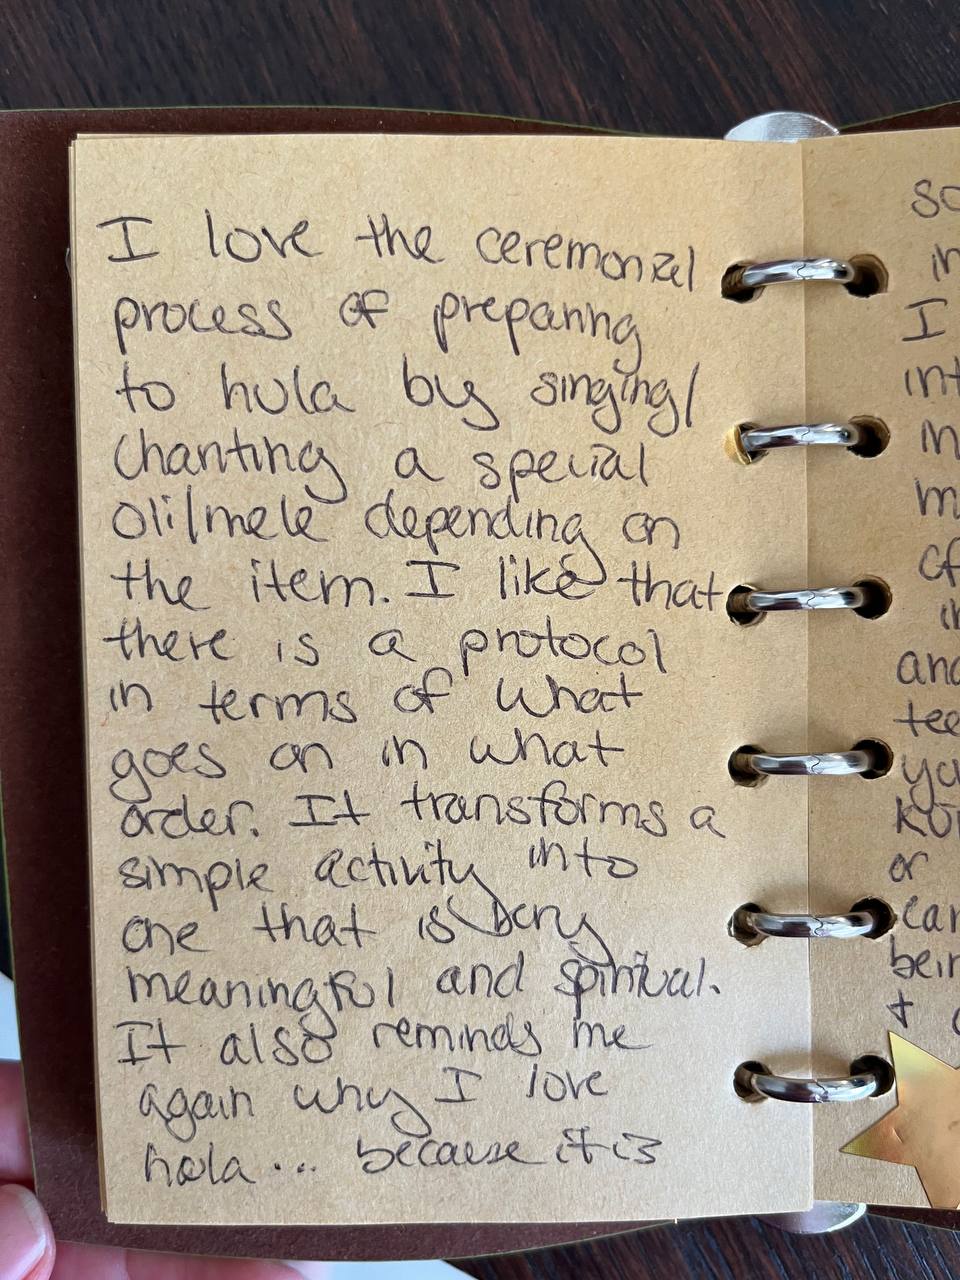 I love the ceremonial
process of preparing
to hula by singing/
chanting a special
oli/mele depending on
the item. I like that
there is a protocol
in terms of what
goes on in what
order. It transforms a
simple activity into
one that is very
meaningful and spiritual.
It also reminds me
again why I love
hula... because it is
so
in
I
int
in
m
of
in
and
tee
or
bein
+